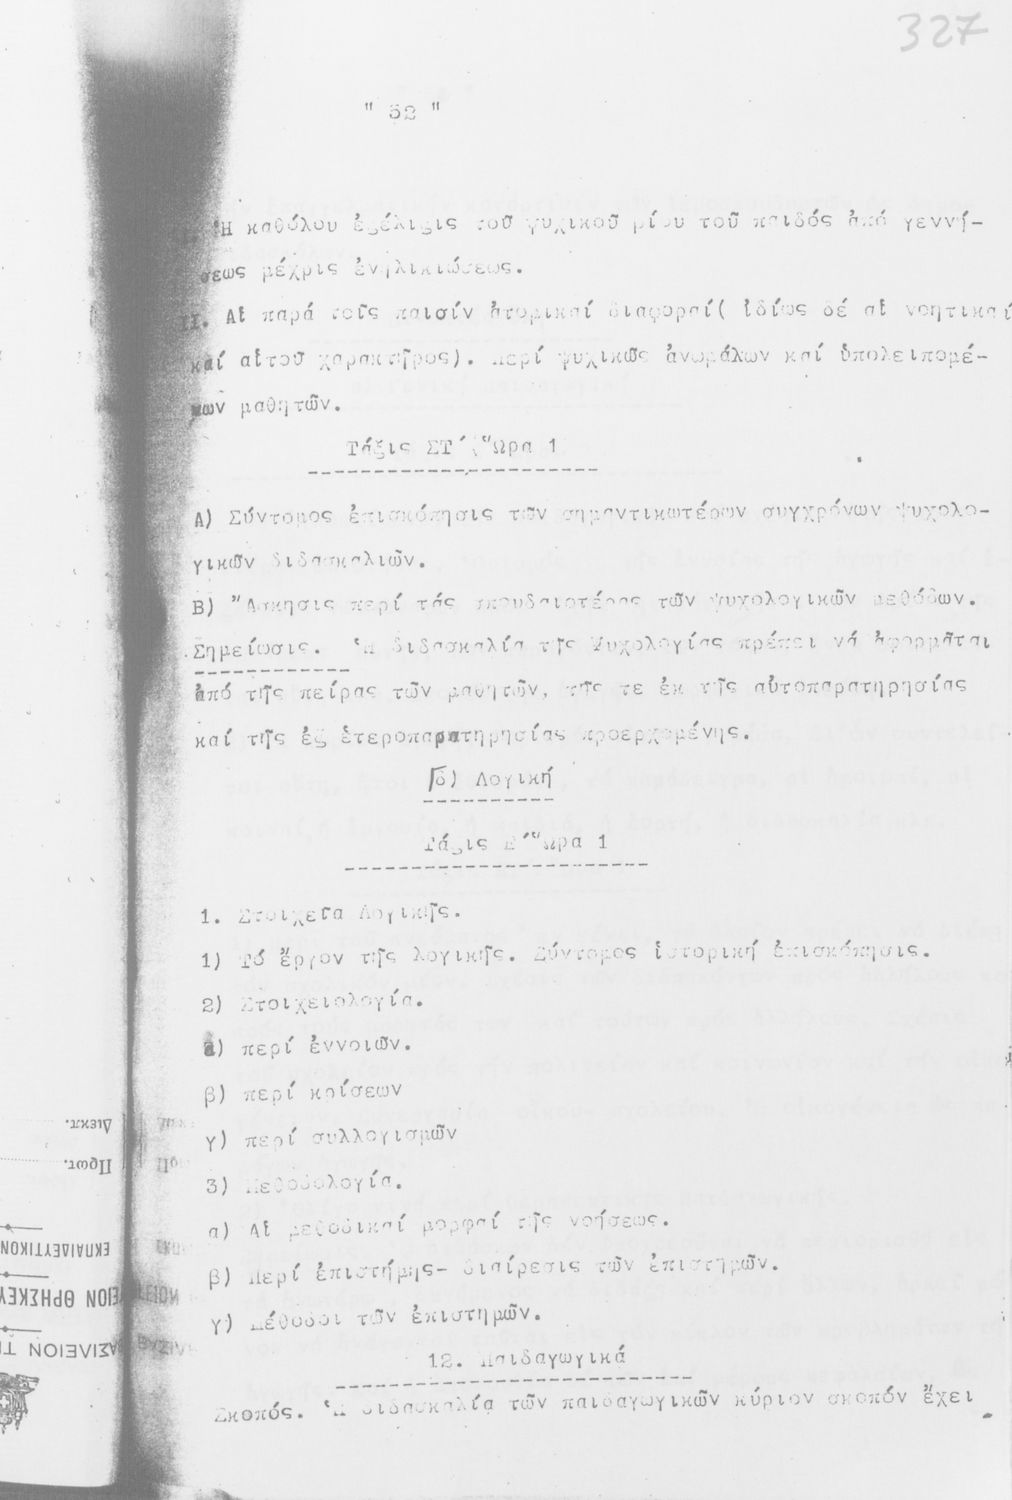 327
" 52 "
Ἡ καθόλου ἐξέλιξις τοῦ ψυχικοῦ βίου τοῦ παιδός ἀπό γεννή-
σεως μέχρις ἐνηλικιώσεως.
II. Αἱ παρά τοῖς παισίν ἀτομικαί διαφοραί( ἰδίως δέ αἱ νοητικαί
καί αἱτοῦ χαρακτῆρος). Περί ψυχικῶς ἀνωμάλων καί ὑπολειπομέ-
νων μαθητῶν.
Τάξις ΣΤ΄ Ὥρα 1
Α) Σύντομος ἐπισκόπησις τῶν σημαντικωτέρων συγχρόνων ψυχολο-
γικῶν διδασκαλιῶν.
Β) Ἄσκησις περί τάς σπουδαιοτέρας τῶν ψυχολογικῶν μεθόδων.
Σημείωσις. Ἡ διδασκαλία τῆς Ψυχολογίας πρέπει νά ἀφορμᾶται
ἀπό τῆς πείρας τῶν μαθητῶν, τῆς τε ἐκ τῆς αὐτοπαρατηρησίας
καί τῆς ἐξ ἑτεροπαρατηρησίας προερχομένης.
δ) Λογική
Τάξις Ε΄ Ὥρα 1
1. Στοιχεῖα Λογικῆς.
1) Τό ἔργον τῆς λογικῆς. Σύντομος ἱστορική ἐπισκόπησις.
2) Στοιχειολογία.
α) περί ἐννοιῶν.
β) περί κρίσεων
γ) περί συλλογισμῶν
3) Μεθοδολογία.
α) Αἱ μεθοδικαί μορφαί τῆς νοήσεως.
β) Περί ἐπιστήμης- διαίρεσις τῶν ἐπιστημῶν.
γ) Μέθοδοι τῶν ἐπιστημῶν.
12. Παιδαγωγικά
Σκοπός. Ἡ διδασκαλία τῶν παιδαγωγικῶν κύριον σκοπόν ἔχει
Διεκπ.
Πρωτ.
ΕΚΠΑΙΔΕΥΤΙΚΟΝ
ΒΑΣΙΛΕΙΟΝ